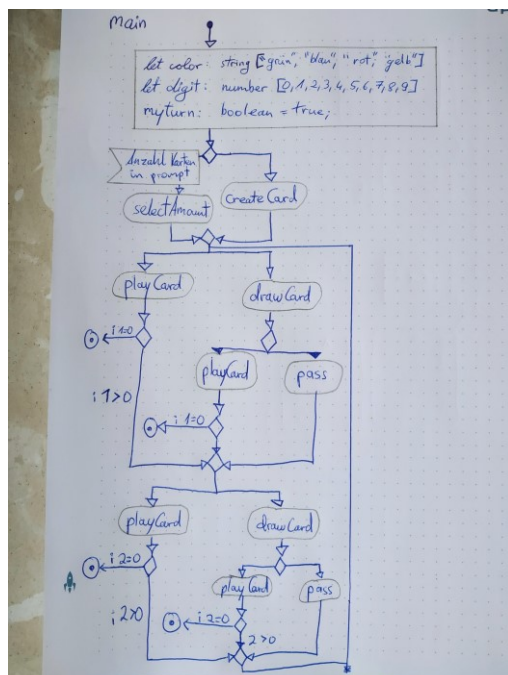 main
let color: string ["grün", "blau", "rot", "gelb"]
let digit: number [0,1,2,3,4,5,6,7,8,9]
myturn: boolean = true;
Anzahl Karten
in prompt
selectAmount
createCard
playCard
drawCard
i 1=0
playCard
pass
i 1>0
i 1=0
playCard
drawCard
i 2=0
playCard
pass
i 2>0
i 2=0
2>0